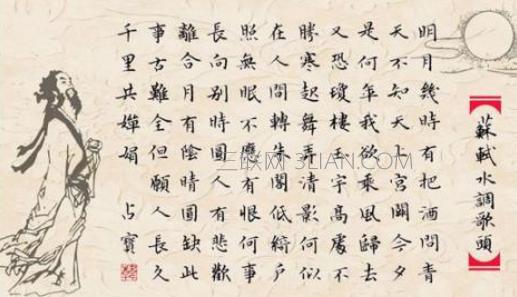 蘇軾水調歌頭
明月幾時有把酒問青
天不知天上宮闕今夕
是何年我欲乘風歸去
又恐瓊樓玉宇高處不
勝寒起舞弄清影何似
在人間轉朱閣低綺戶
照無眠不應有恨何事
長向別時圓人有悲歡
離合月有陰晴圓缺此
事古難全但願人長久
千里共嬋娟 占寶
三联网 3LIAN.COM